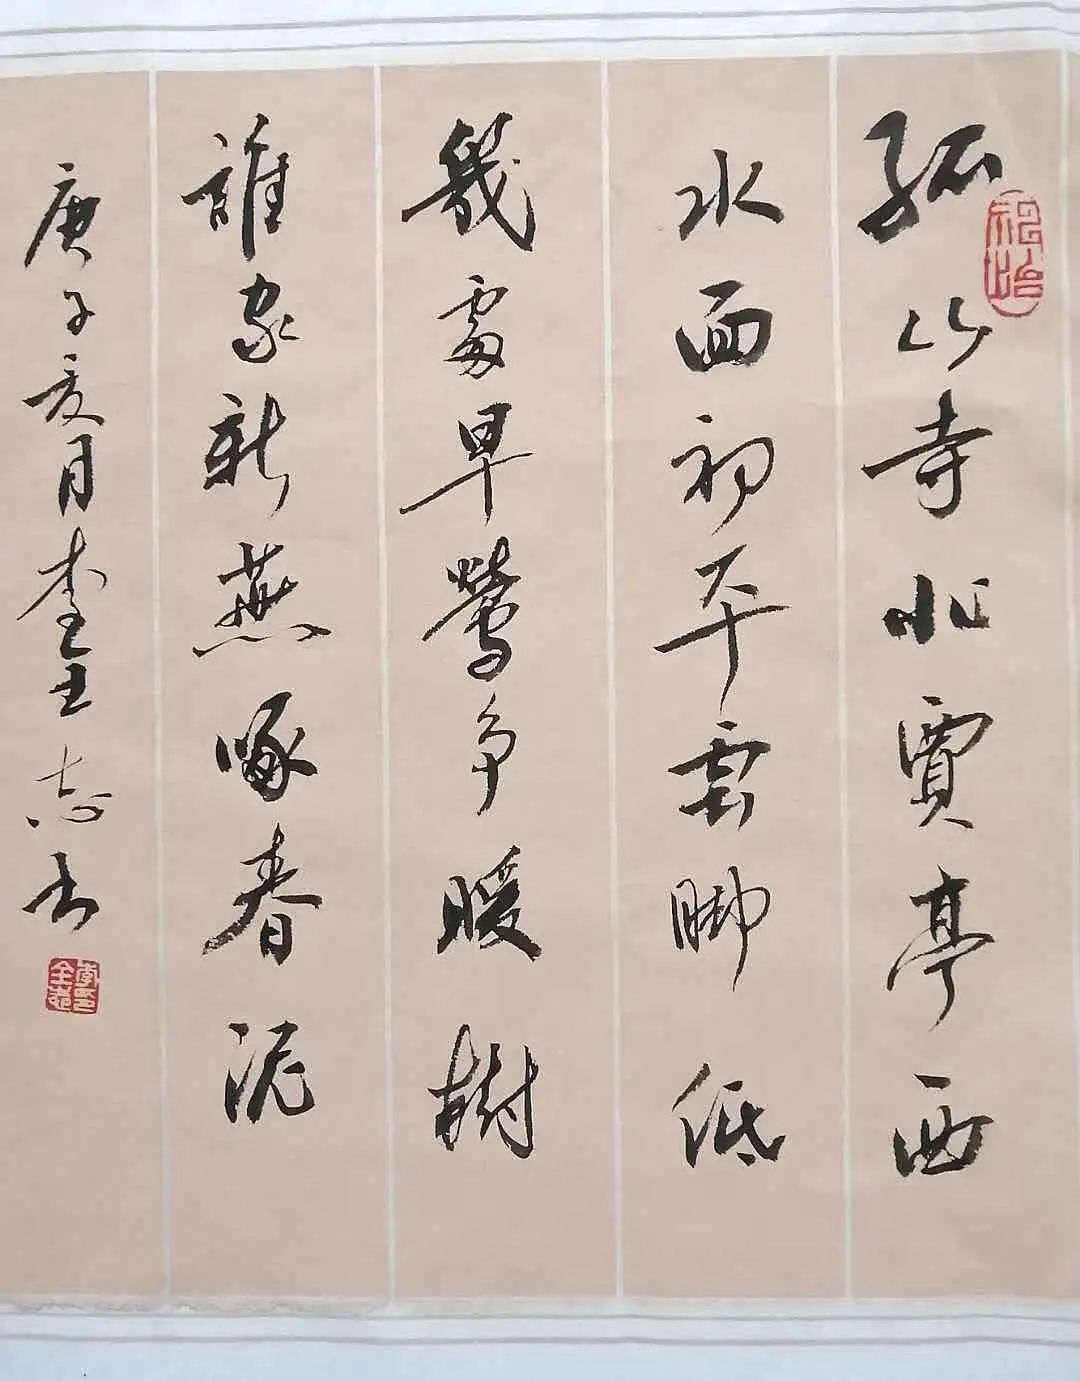 孤山寺北賈亭西
水面初平雲脚低
幾處早鶯争暖樹
誰家新燕啄春泥
庚子夏月李全志书